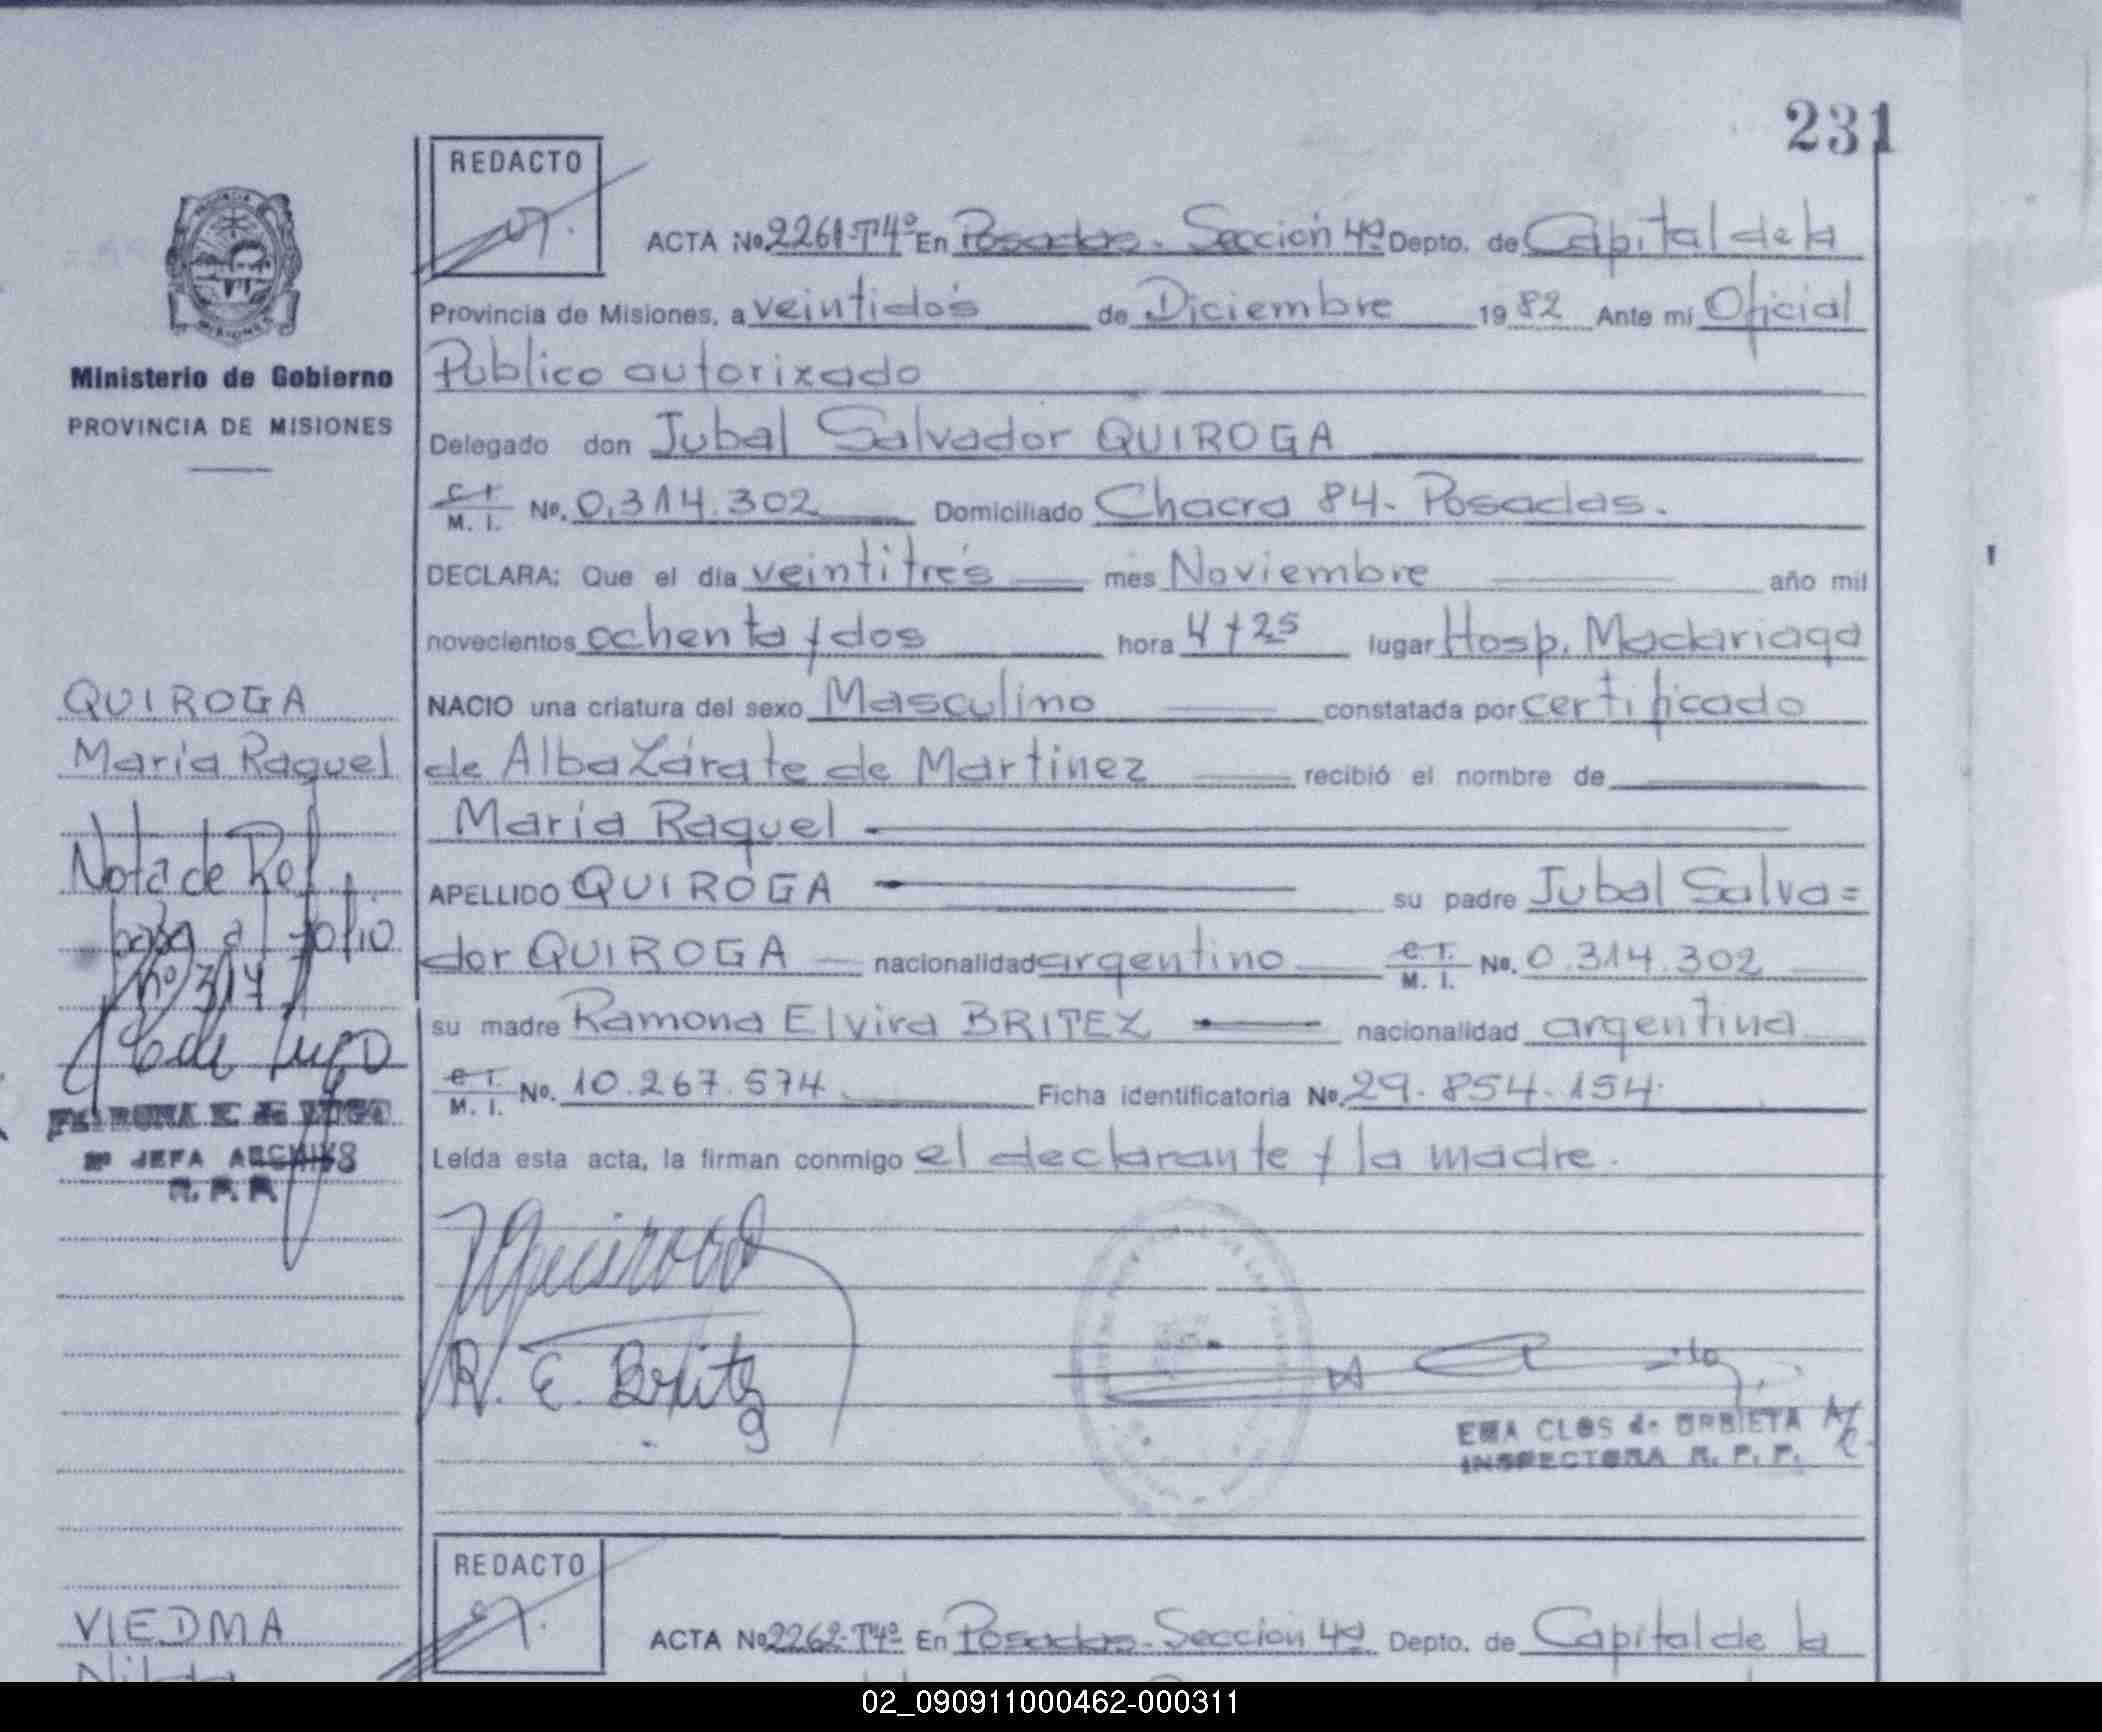 231
REDACTO
ACTA No 2261-T4º En Posadas. Sección 4ª Depto. de Capital de la
Provincia de Misiones, a veintidós de Diciembre 1982 Ante mi Oficial
Ministerio de Gobierno
Público autorizado
PROVINCIA DE MISIONES
Delegado don Jubal Salvador QUIROGA
C. I. M. I. No. 0.314.302 Domiciliado Chacra 84 - Posadas.
DECLARA: Que el día veintitrés mes Noviembre año mil
novecientos ochenta y dos hora 4 y 25 lugar Hosp. Madariaga
QUIROGA
NACIO una criatura del sexo Masculino constatada por certificado
María Raquel
de Alba Zárate de Martinez recibió el nombre de
María Raquel
Nota de Ref
APELLIDO QUIROGA su padre Jubal Salva=
pasa al folio
dor QUIROGA nacionalidad argentino C. I. M. I. No. 0.314.302
nº 317
su madre Ramona Elvira BRITEZ nacionalidad argentina
C. I. M. I. No. 10.267.574 Ficha identificatoria No. 29.854.154.
de LUGO
JEFA ARCHIVO
R. P. P.
Leída esta acta, la firman conmigo el declarante y la madre.
JQuiroga
R. E. Britez
EMA CLOS de URBIETA A/C
INSPECTORA R. P. P.
REDACTO
VIEDMA
ACTA No 2262-T4º En Posadas. Sección 4ª Depto. de Capital de la
02_090911000462-000311